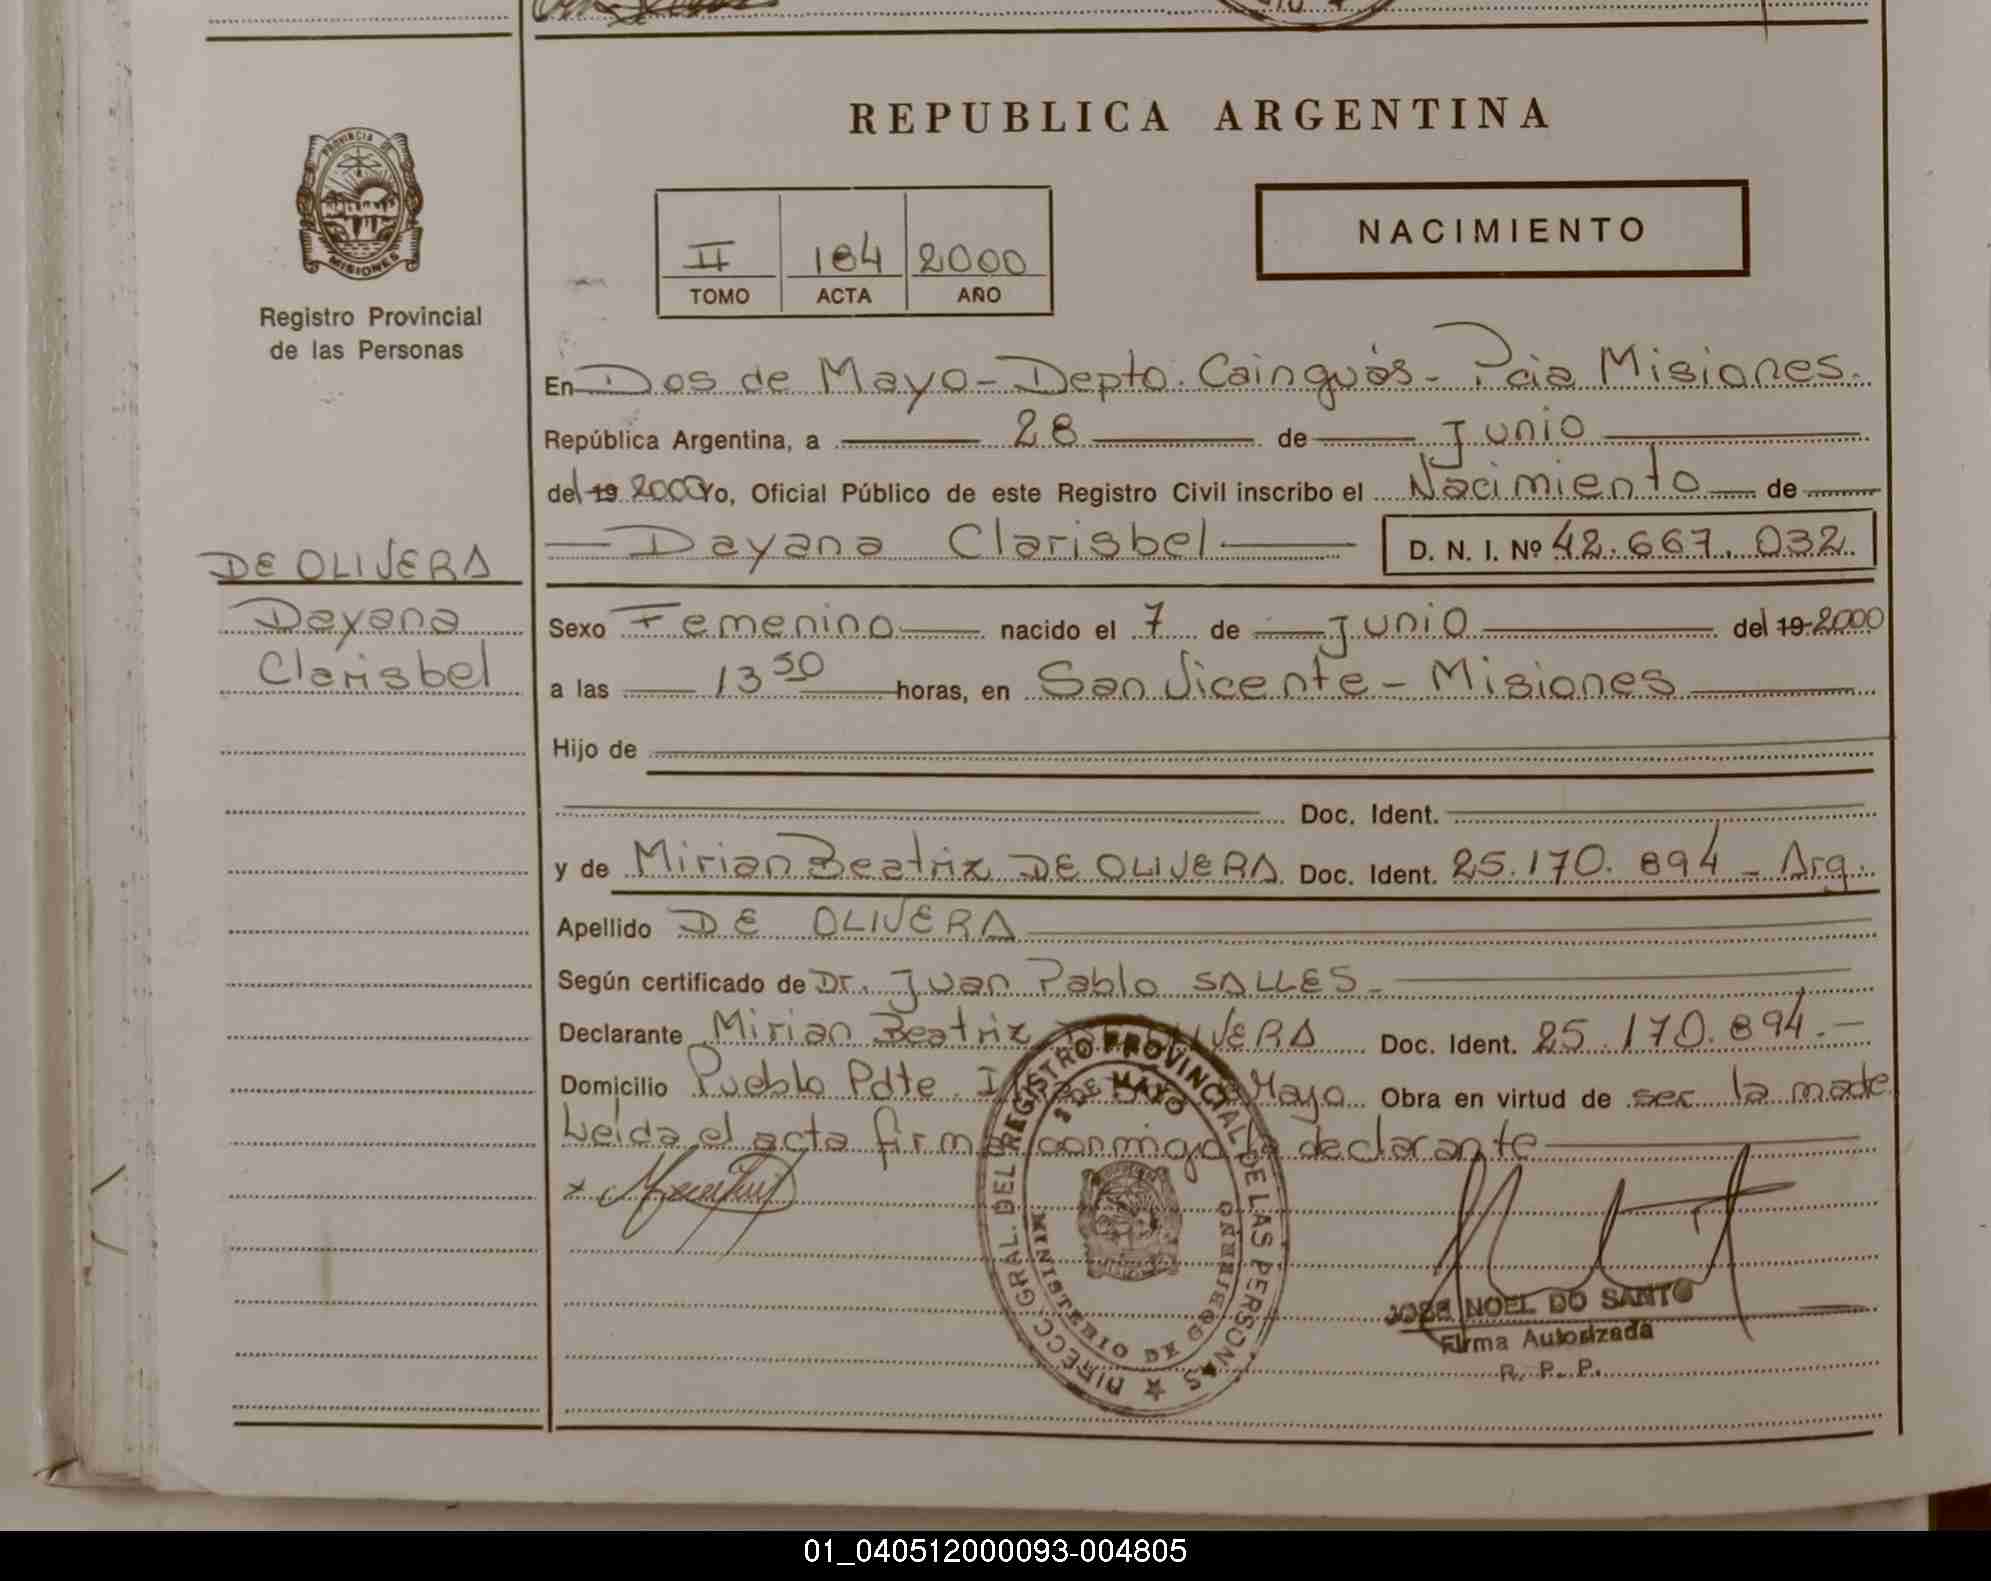 REPUBLICA ARGENTINA
PROVINCIA DE
MISIONES
Registro Provincial
de las Personas
NACIMIENTO
II 184 2000
TOMO ACTA AÑO
En Dos de Mayo - Depto. Cainguás - Pcia Misiones.
República Argentina, a 28 de Junio
del 19 2000 Yo, Oficial Público de este Registro Civil inscribo el Nacimiento de
Dayana Clarisbel D. N. I. Nº 42.667.032
DE OLIVERA
Dayana
Clarisbel
Sexo Femenino nacido el 7 de Junio del 19 2000
a las 13 50 horas, en San Vicente - Misiones
Hijo de
Doc. Ident.
y de Mirian Beatriz DE OLIVERA Doc. Ident. 25.170.894 - Arg.
Apellido DE OLIVERA
Según certificado de Dr. Juan Pablo SALLES -
Declarante Mirian Beatriz DE OLIVERA Doc. Ident. 25.170.894.-
Domicilio Pueblo Pdte. Mayo Obra en virtud de ser la made
Leida el acta firma conmigo la declarante
DIRECC. GRAL. DEL REGISTRO PROVINCIAL DE LAS PERSONAS
2 DE MAYO
MINISTERIO DE GOBIERNO
JOSE NOEL DO SANTO
Firma Autorizada
R. P. P.
01_040512000093-004805